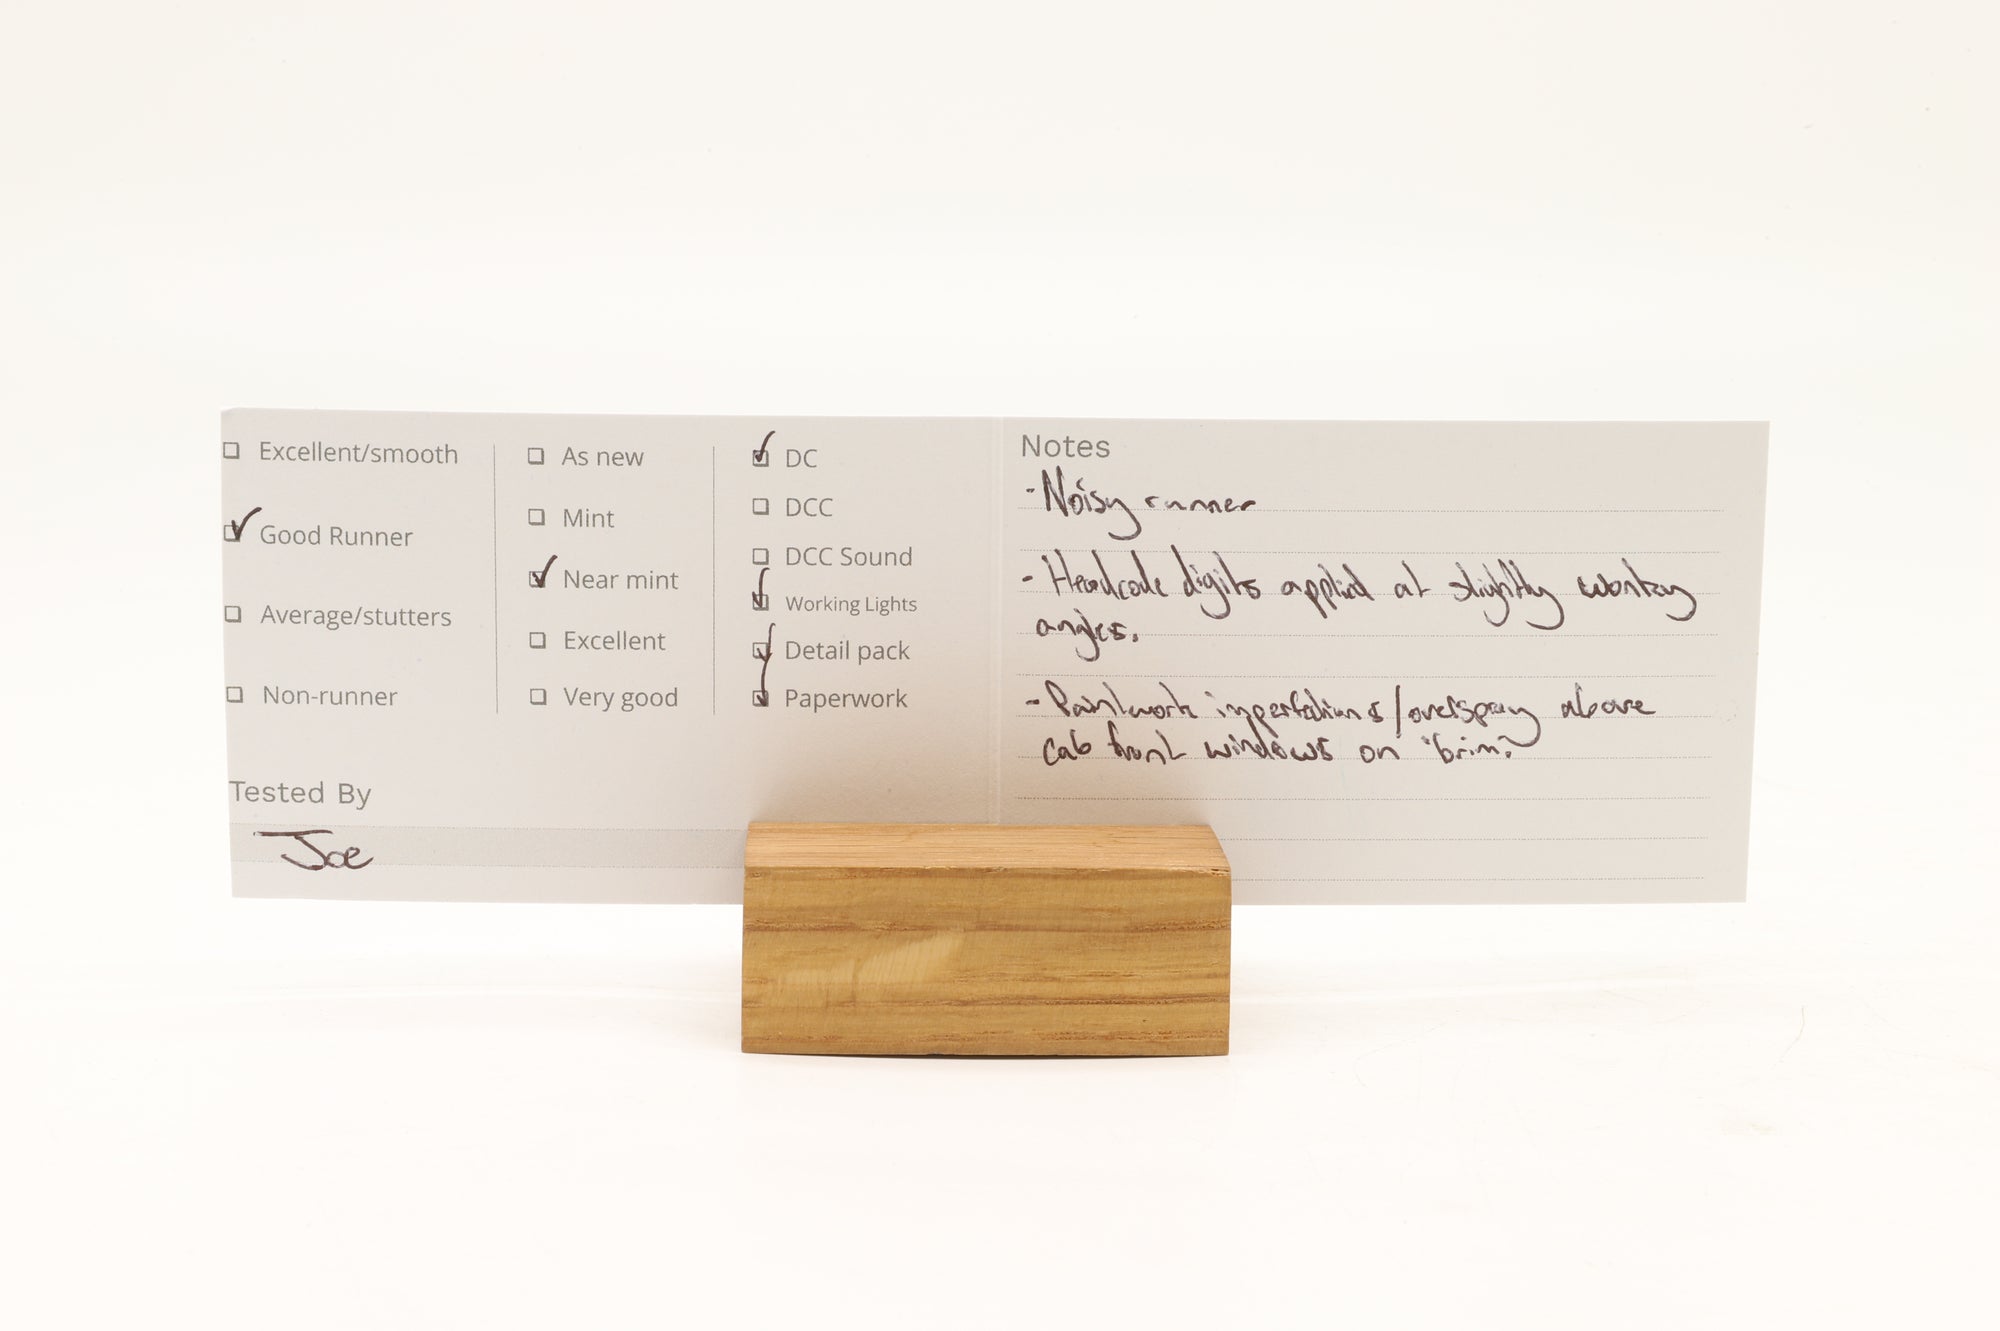 Excellent/smooth
Good Runner
Average/stutters
Non-runner
As new
Mint
Near mint
Excellent
Very good
DC
DCC
DCC Sound
Working Lights
Detail pack
Paperwork
Tested By
Joe
Notes
- Noisy runner
- Headcode digits applied at slightly wonky
angles.
- Paintwork imperfections/overspray above
cab front windows on 'brim'.